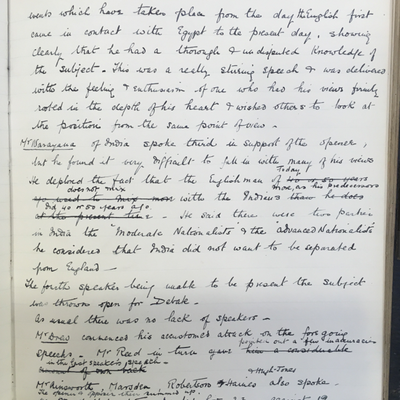 ments which have taken place from the day th English first
came in contact with Egypt to the present day, showing
clearly that he had a thorough & undisputed Knowledge of
the subject. This was a really stirring speech & was delivered
with the feeling & enthusiasm of one who has his views firmly
rooted in the depth of his heart & wished others to look at
the position from the same point of view.
Mr Narayana of India spoke third in support of the opener,
but he found it very difficult to fall in with many of his views
He deplored the fact that the Englishman of today,
does not mix with the Indians as his predecessors
did 40 or 50 years ago. He said there were two parties
in India the "Moderate Nationalists" & the "advanced Nationalists"
he considered that India did not want to be separated
from England —
The fourth speaker being unable to be present the subject
was thrown open for Debate.
As usual there was no lack of speakers —
Mr Dras commenced his accustomed attack on the foregoing
speech. Mr Reed in turn gave
in the last speaker's speech
& Hugh-Jones
Mr Ainsworth, Marsden, Robertson & Haines also spoke.